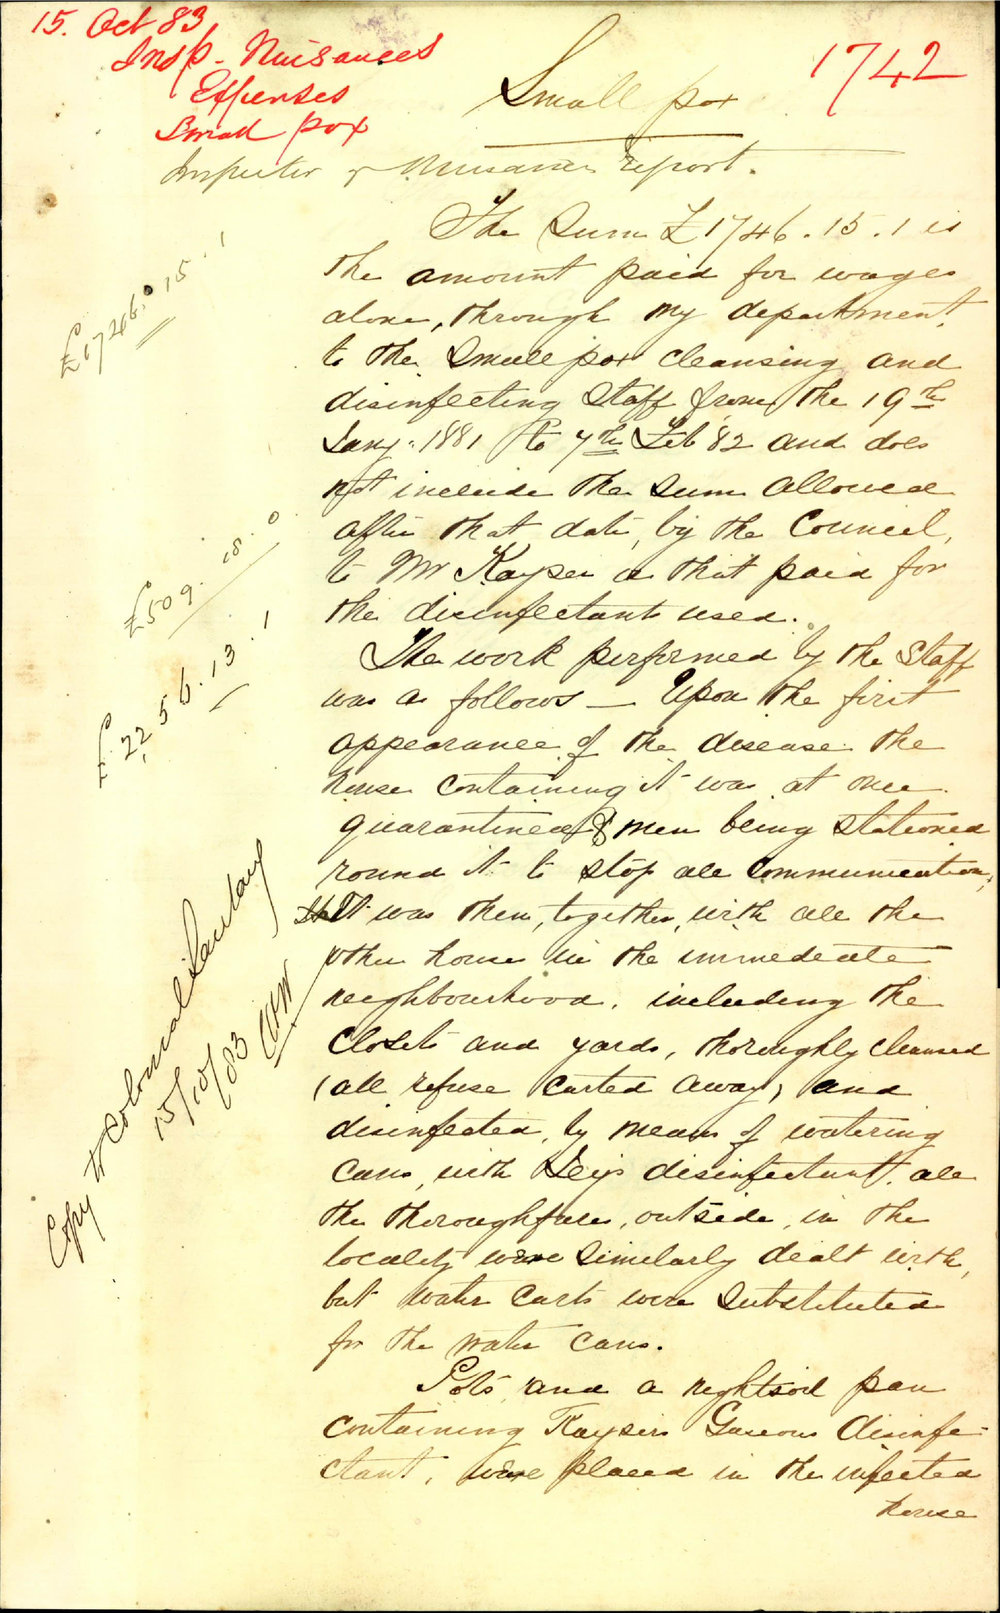 15. Oct 83
Insp. Nuisances
Expenses
Small pox
1742
Small pox
Inspector of Nuisances report.
The Sum £1746.15.1 is
the amount paid for wages
alone, through my department,
to the Small pox cleansing and
disinfecting Staff from the 19th
Jany. 1881 to 7th Feb 82 and does
not include the sum allowed
after that date, by the Council,
to Mr Kayser or that paid for
the disinfectant used.
The work performed by the Staff
was as follows — Upon the first
appearance of the disease the
house containing it was at once
quarantined & men being stationed
round it to stop all communication,
It was then, together, with all the
other houses in the immediate
neighbourhood, including the
closets and yards, thoroughly cleansed
(all refuse carted away) and
disinfected, by means of watering
cans, with disinfectant, all
the thoroughfares, outside, in the
locality were similarly dealt with,
but water carts were substituted
for the water cans.
Pots and a nightsoil pan
containing Kaysers Gaseous disinfe-
ctant, were placed in the infected
house
£1746.15.1
£509.18.0
£2256.13.1
Copy to Colonial Secretary
15/10/83